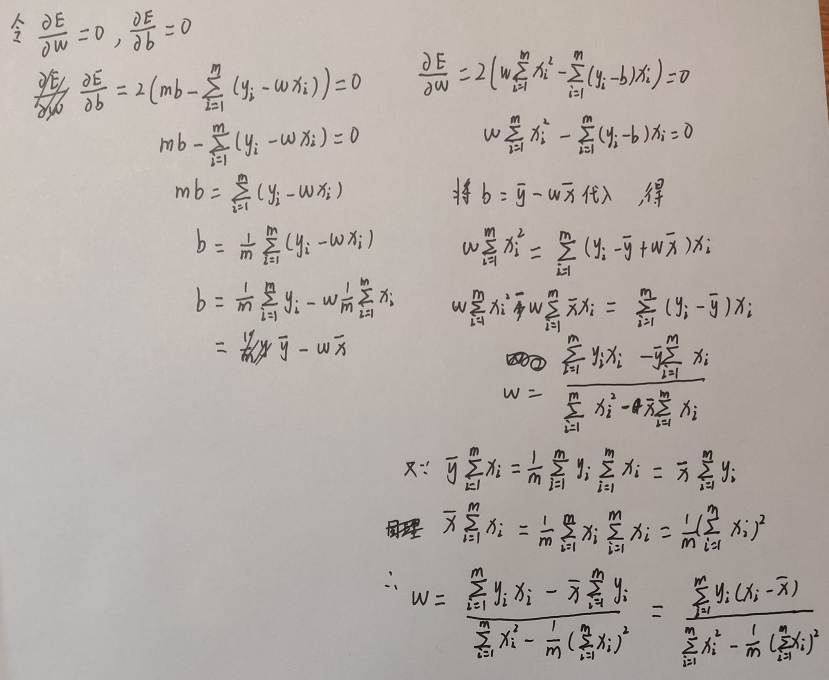 令 ∂E/∂w = 0 , ∂E/∂b = 0
∂E/∂b = 2(mb - ∑_{i=1}^{m} (y_i - wx_i)) = 0
mb - ∑_{i=1}^{m} (y_i - wx_i) = 0
mb = ∑_{i=1}^{m} (y_i - wx_i)
b = 1/m ∑_{i=1}^{m} (y_i - wx_i)
b = 1/m ∑_{i=1}^{m} y_i - w 1/m ∑_{i=1}^{m} x_i
= ȳ - wx̄
∂E/∂w = 2(w∑_{i=1}^{m} x_i² - ∑_{i=1}^{m} (y_i - b)x_i) = 0
w∑_{i=1}^{m} x_i² - ∑_{i=1}^{m} (y_i - b)x_i = 0
将 b = ȳ - wx̄ 代入 ,得
w∑_{i=1}^{m} x_i² = ∑_{i=1}^{m} (y_i - ȳ + wx̄)x_i
w∑_{i=1}^{m} x_i² - w∑_{i=1}^{m} x̄x_i = ∑_{i=1}^{m} (y_i - ȳ)x_i
w = (∑_{i=1}^{m} y_i x_i - ȳ∑_{i=1}^{m} x_i) / (∑_{i=1}^{m} x_i² - x̄∑_{i=1}^{m} x_i)
又∵ ȳ∑_{i=1}^{m} x_i = 1/m ∑_{i=1}^{m} y_i ∑_{i=1}^{m} x_i = x̄ ∑_{i=1}^{m} y_i
x̄∑_{i=1}^{m} x_i = 1/m ∑_{i=1}^{m} x_i ∑_{i=1}^{m} x_i = 1/m (∑_{i=1}^{m} x_i)²
∴ w = (∑_{i=1}^{m} y_i x_i - x̄∑_{i=1}^{m} y_i) / (∑_{i=1}^{m} x_i² - 1/m (∑_{i=1}^{m} x_i)²) = (∑_{i=1}^{m} y_i(x_i - x̄)) / (∑_{i=1}^{m} x_i² - 1/m (∑_{i=1}^{m} x_i)²)